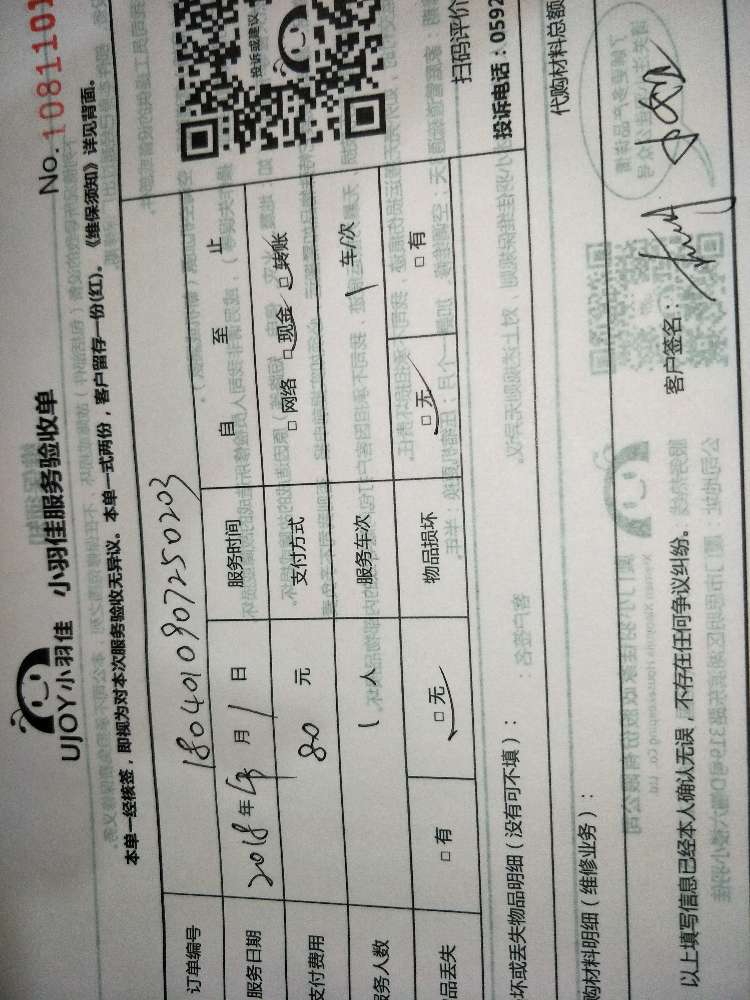 No. 1081101
UJOY小羽佳 小羽佳服务验收单
本单一经核签，即视为对本次服务验收无异议。本单一式两份，客户留存一份(红)。《维保须知》详见背面。
投诉或建议
订单编号 1804010907250203
服务日期 2018年 月1日 服务时间 自 至 止
支付费用 80 元 支付方式 □网络 □现金 □转账
服务人数 1 人 服务车次 1 车/次
品丢失 □有 □无 物品损坏 □无 □有
扫码评价
投诉电话：0592
坏或丢失物品明细（没有可不填）：
购材料明细（维修业务）：
代购材料总额
以上填写信息已经本人确认无误，不存在任何争议纠纷。
客户签名：